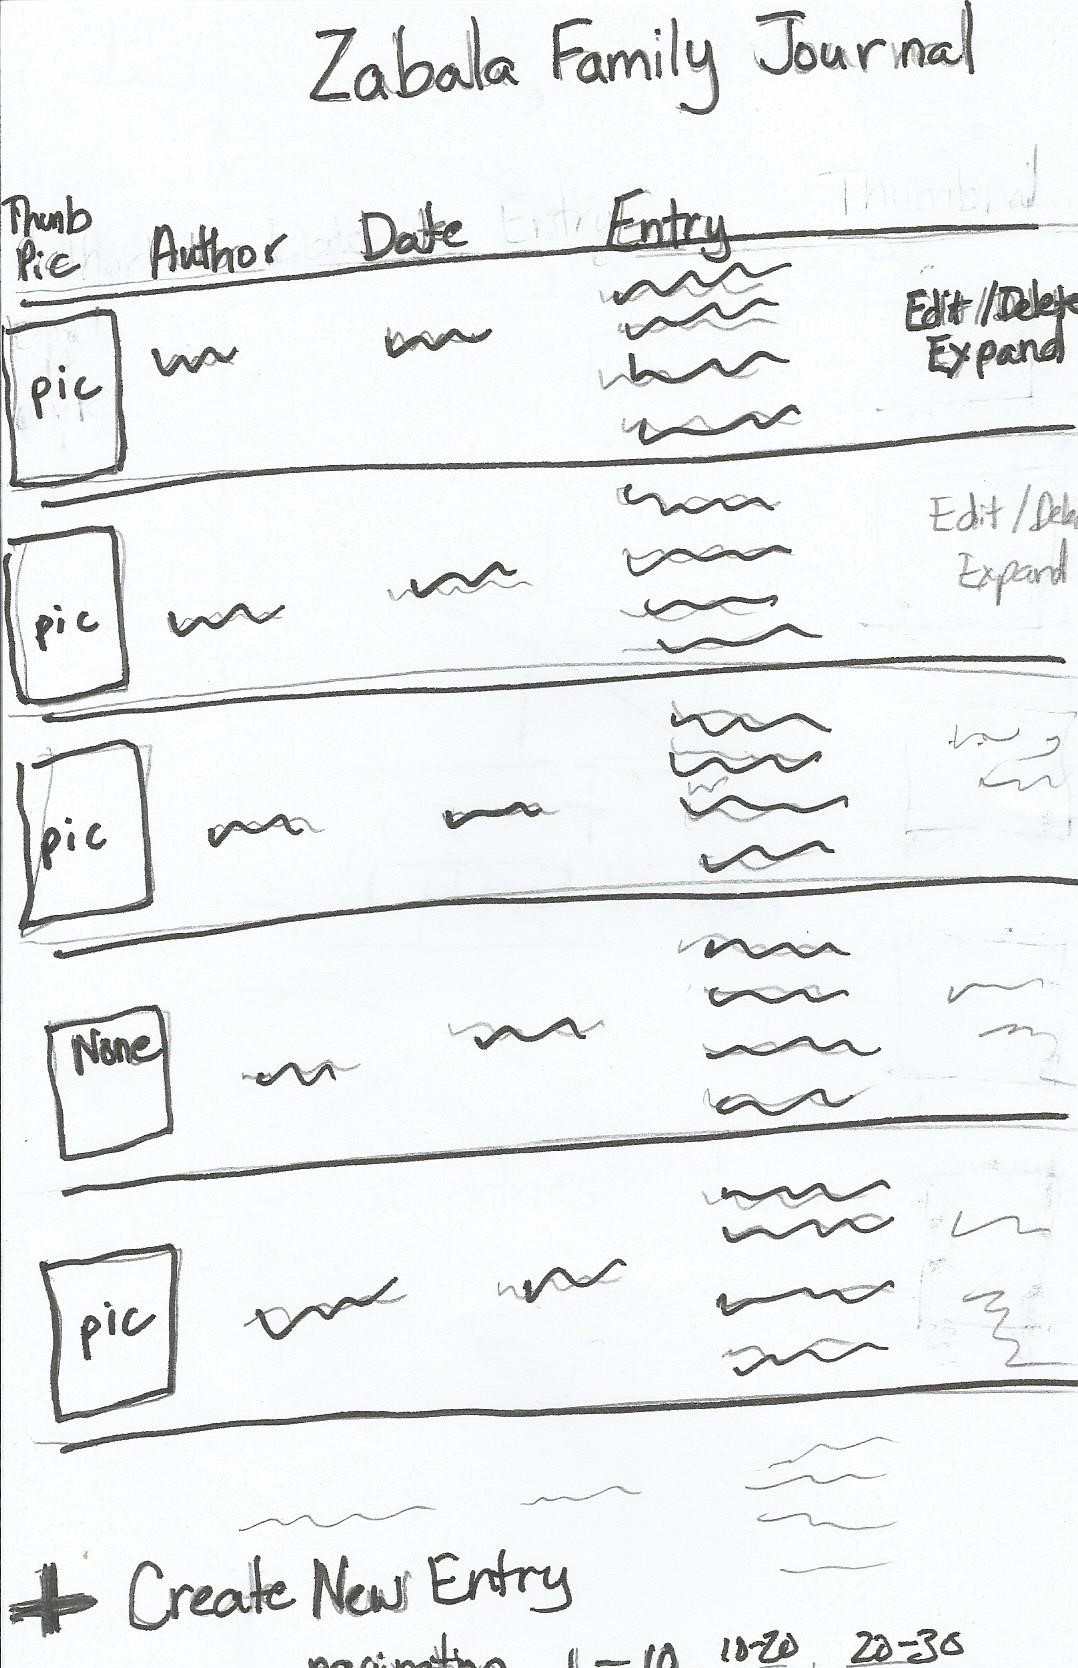 Zabala Family Journal
Thumb Pic Author Date Entry Thumbnail
pic Edit / Delete
Expand
pic Edit / Dele
Expand
pic
None
pic
+ Create New Entry
paginating 1-10 10-20 20-30